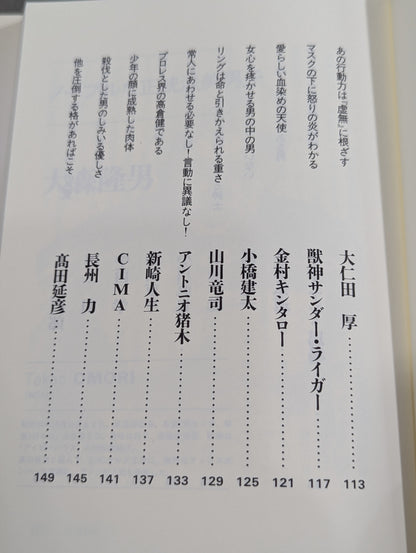 あの行動力は『虚無』に根ざす
大仁田 厚 113
マスクの下に怒りの炎がわかる
獣神サンダー・ライガー 117
愛らしい血染めの天使
金村キンタロー 121
女心を疼かせる男の中の男
小橋建太 125
リングは命と引きかえられる重さ
山川竜司 129
常人にあわせる必要なし！言動に異議なし！
アントニオ猪木 133
プロレス界の高倉健である
新崎人生 137
少年の顔に成熟した肉体
CIMA 141
殺伐とした男のしみいる優しさ
長州 力 145
他を圧倒する格があればこそ
髙田延彦 149